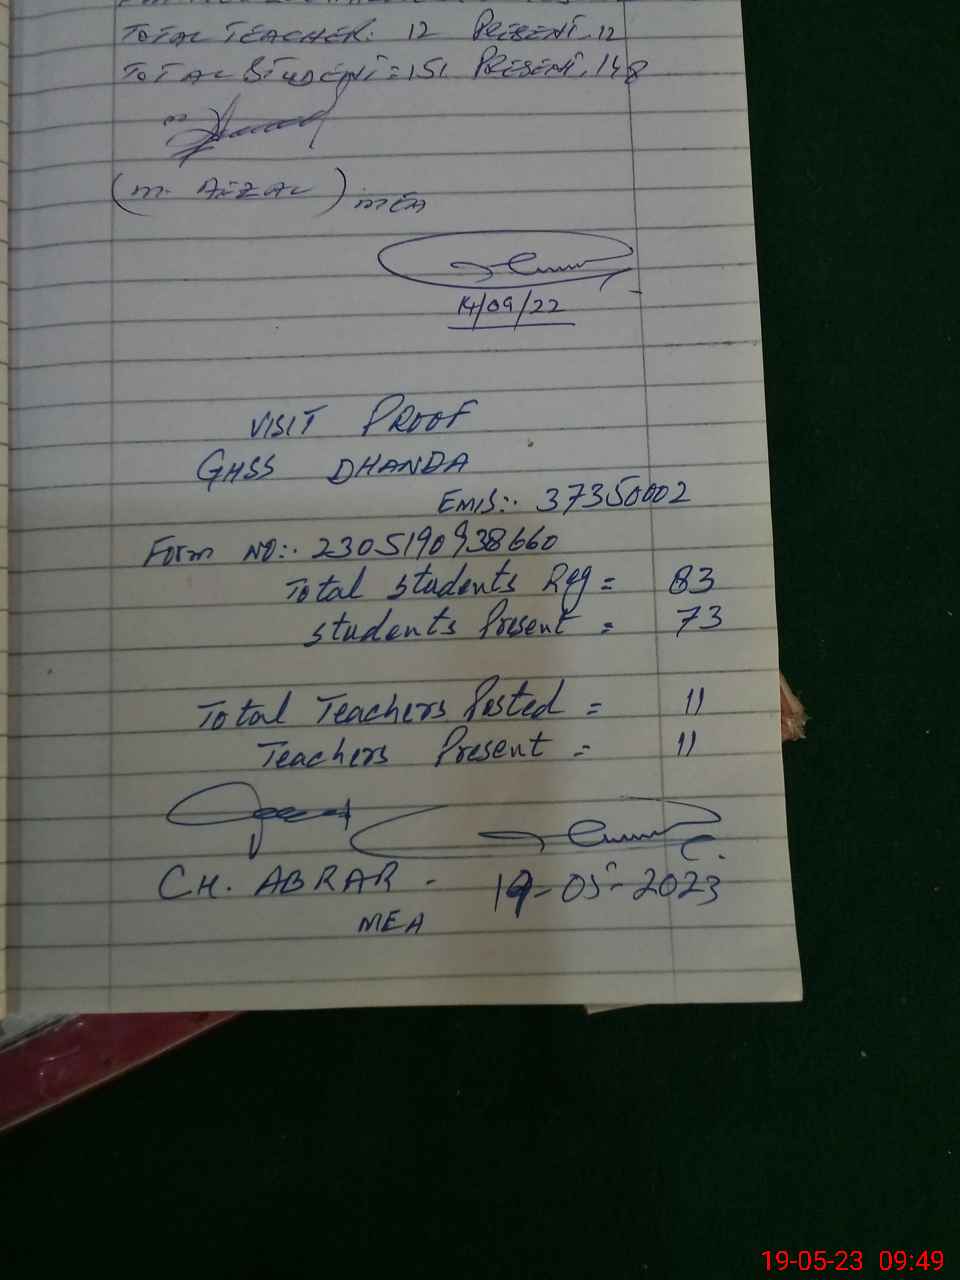 TOTAL TEACHER: 12 PRESENT. 12
TOTAL STUDENT = 151 PRESENT. 148
(M. AFZAL) MEA
14/09/22
VISIT PROOF
GHSS DHANDA
EMIS:. 37350002
Form NO:. 2305190938660
Total students Reg = 83
students Present = 73
Total Teachers Posted = 11
Teachers Present = 11
CH. ABRAR - 19-05-2023
MEA
19-05-23 09:49